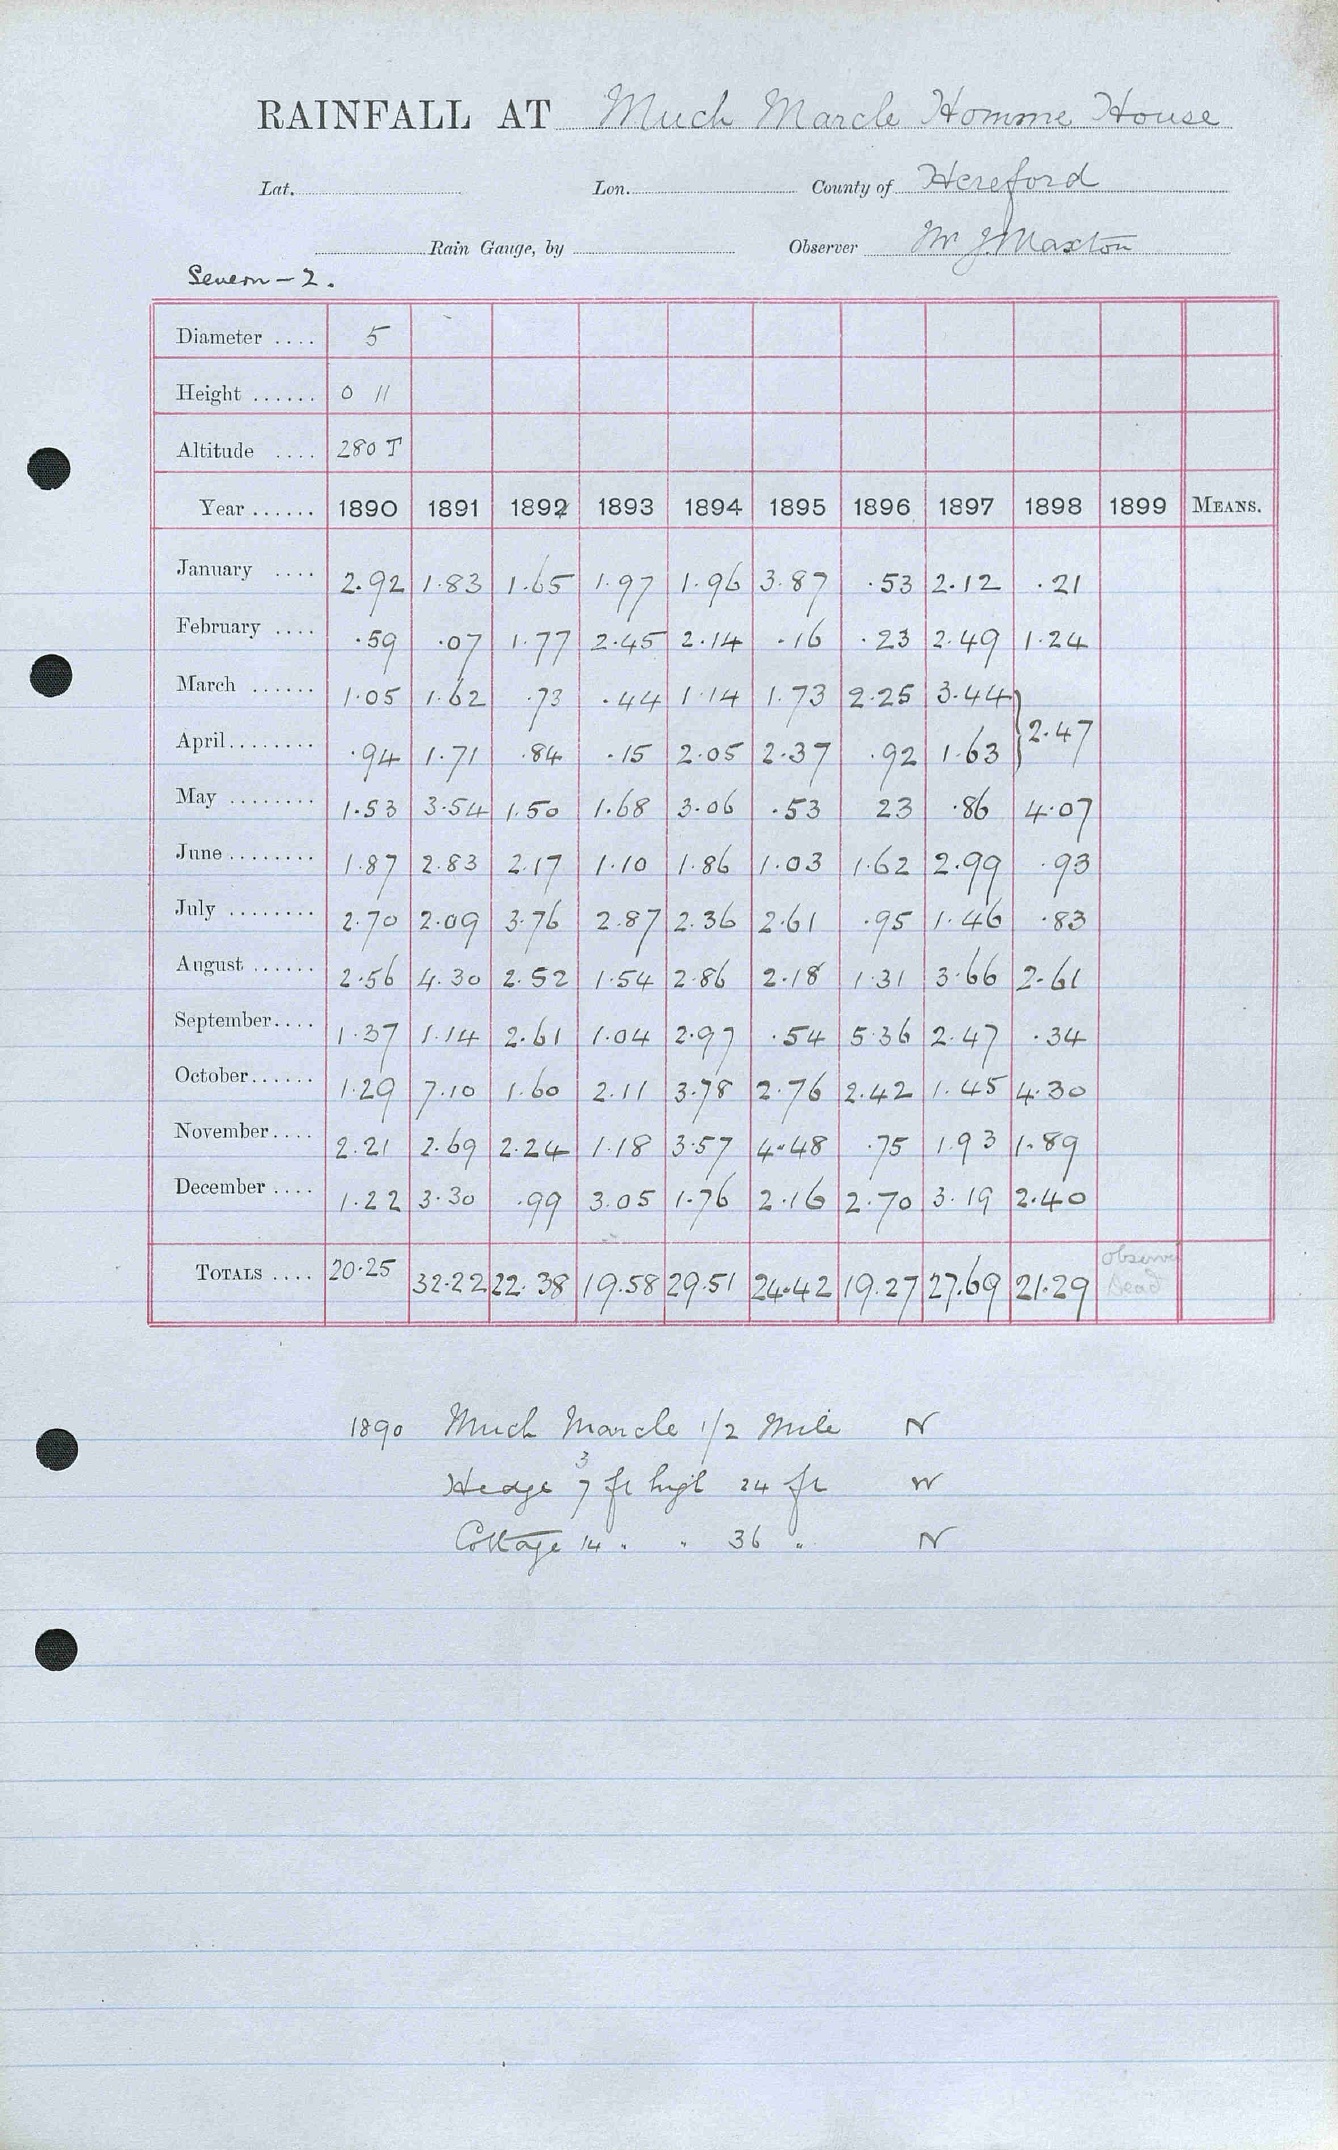 RAINFALL AT Much Marcle Homme House
Lat. Lon. County of Hereford
Rain Gauge, by Observer Mr J. Maxton
Severn - 2.
Diameter .... 5
Height ...... 0 11
Altitude .... 280 T
Year ...... 1890 1891 1892 1893 1894 1895 1896 1897 1898 1899 MEANS.
January .... 2.92 1.83 1.65 1.97 1.96 3.87 .53 2.12 .21
February .... .59 .07 1.77 2.45 2.14 .16 .23 2.49 1.24
March ...... 1.05 1.62 .73 .44 1.14 1.73 2.25 3.44
April........ .94 1.71 .84 .15 2.05 2.37 .92 1.63 } 2.47
May ........ 1.53 3.54 1.50 1.68 3.06 .53 23 .86 4.07
June ........ 1.87 2.83 2.17 1.10 1.86 1.03 1.62 2.99 .93
July ........ 2.70 2.09 3.76 2.87 2.36 2.61 .95 1.46 .83
August ...... 2.56 4.30 2.52 1.54 2.86 2.18 1.31 3.66 2.61
September.... 1.37 1.14 2.61 1.04 2.97 .54 5.36 2.47 .34
October...... 1.29 7.10 1.60 2.11 3.78 2.76 2.42 1.45 4.30
November.... 2.21 2.69 2.24 1.18 3.57 4.48 .75 1.93 1.89
December .... 1.22 3.30 .99 3.05 1.76 2.16 2.70 3.19 2.40
TOTALS .... 20.25 32.22 22.38 19.58 29.51 24.42 19.27 27.69 21.29 Observer
Dead
1890 Much Marcle 1/2 Mile N
3
Hedge 7 ft high 24 ft W
Cottage 14 " " 36 " N